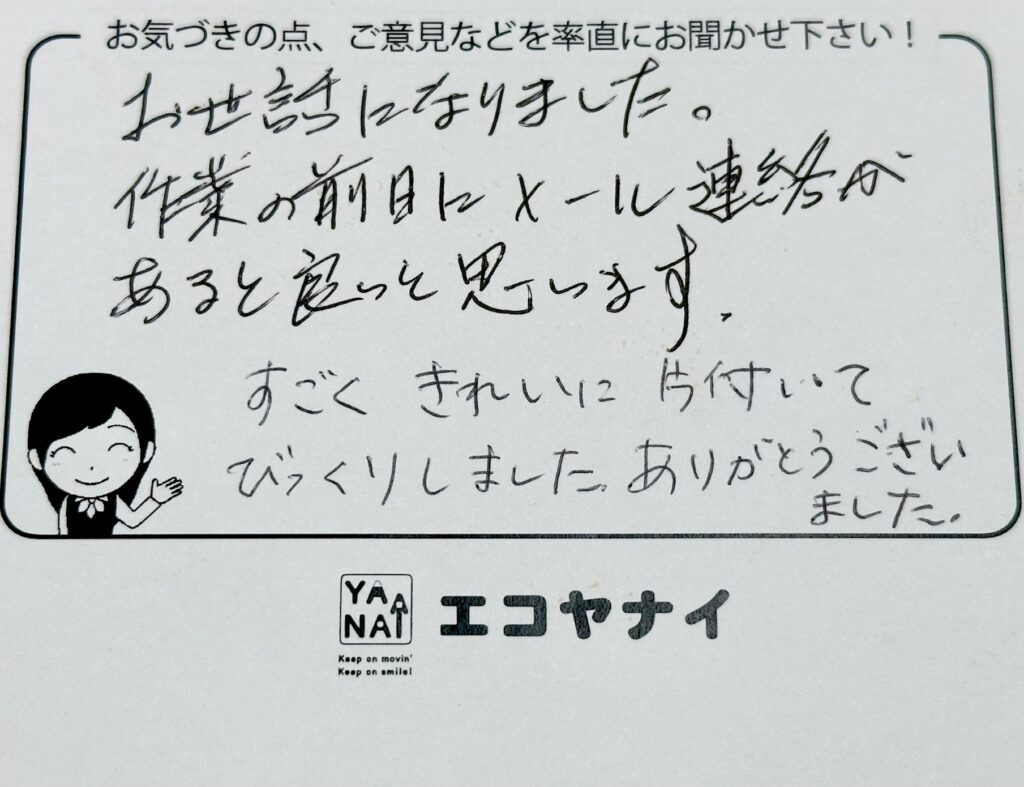 お気づきの点、ご意見などを率直にお聞かせ下さい！
お世話になりました。
作業の前日にメール連絡が
あると良いと思います.
すごく きれいに 片付いて
びっくりしました. ありがとうござい
ました.
YAナNAI
エコヤナイ
Keep on movin'
Keep on smile!